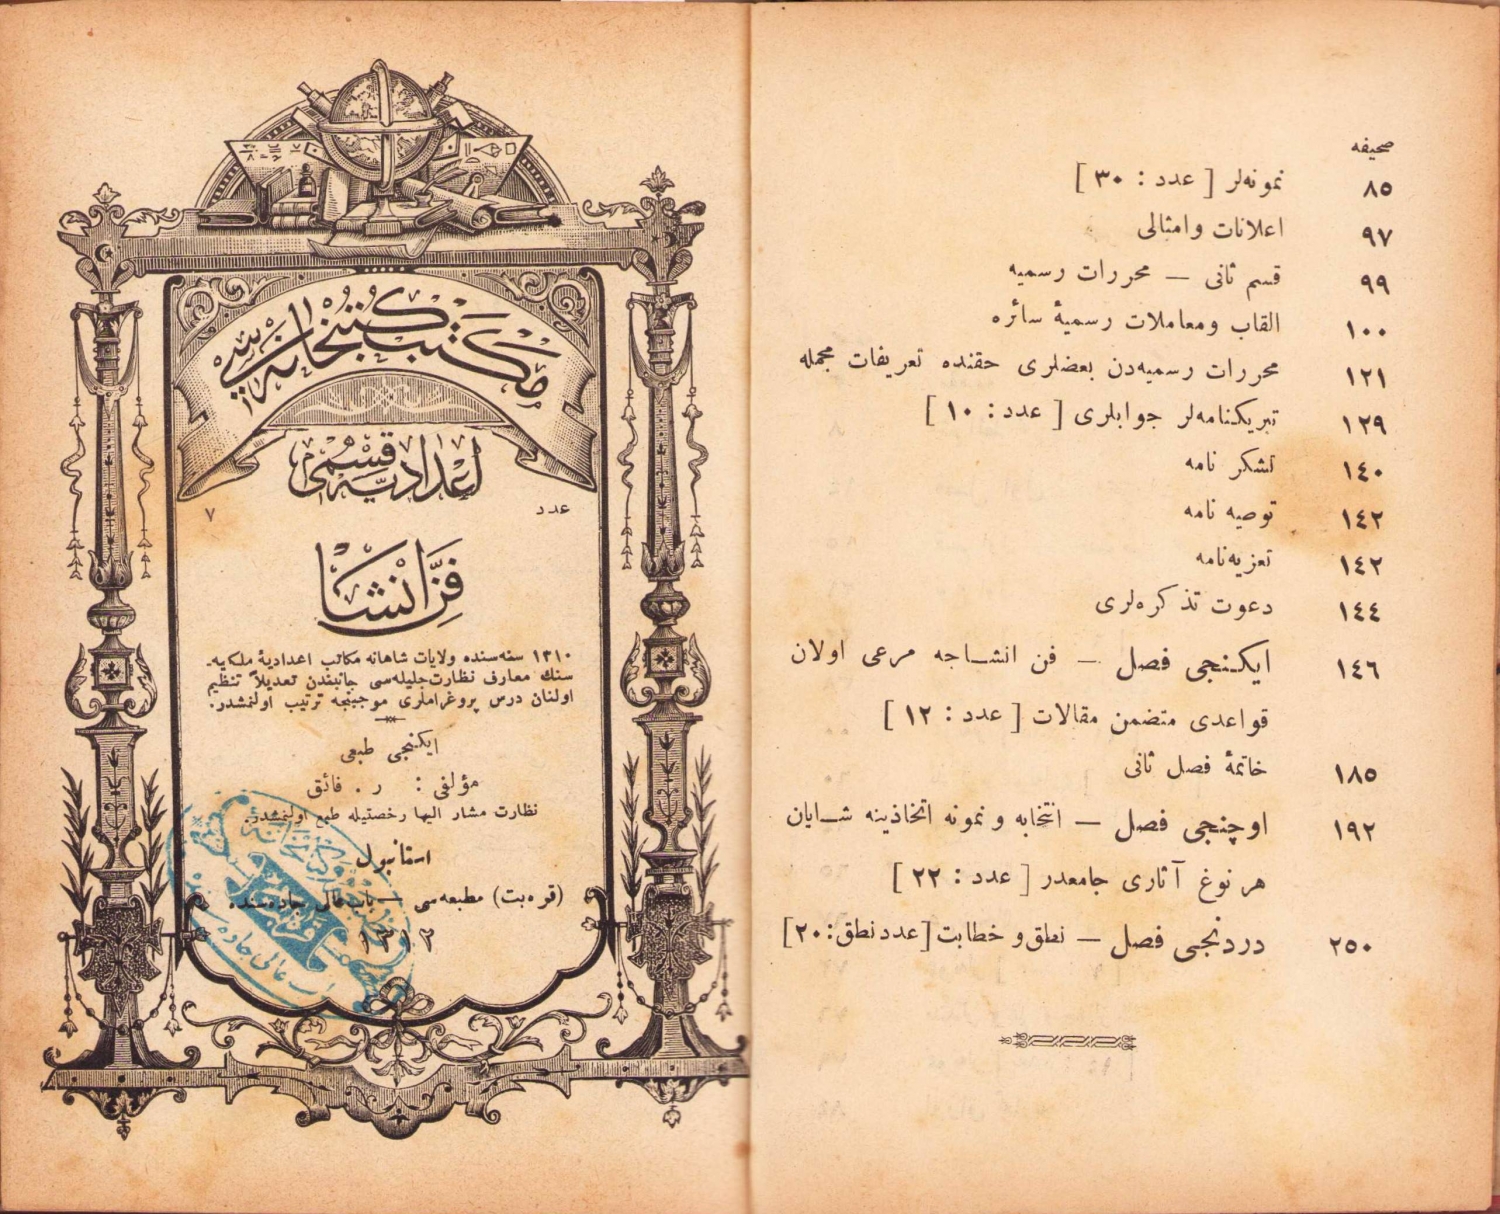 مكتب كتبخانه‌سی
اعدادیه قسمی
عدد ٧
فن انشا
١٣١٠ سنه‌سنده ولایات شاهانه مكاتب اعدادیهٔ ملكیه‌-
سنك معارف نظارت‌جلیله‌سی جانبندن تعدیلاً تنظیم
اولنان درس پروغراملری موجبنجه ترتیب اولنمشدر.
ایكنجی طبعی
مؤلفی : ر . فائق
نظارت مشار الیها رخصتیله طبع اولنمشدر.
استانبول
(قره‌بت) مطبعه‌سی — باب عالی جاده‌سنده
١٣١٢
صحیفه
٨٥ نمونه‌لر [ عدد : ٣٠ ]
٩٧ اعلانات وامثالی
٩٩ قسم ثانی — محررات رسمیه
١٠٠ القاب ومعاملات رسمیهٔ سائره
١٢١ محررات رسمیه‌دن بعضلری حقنده تعریفات مجمله
١٢٩ تبریكنامه‌لر جوابلری [ عدد : ١٠ ]
١٤٠ تشكر نامه
١٤٢ توصیه نامه
١٤٢ تعزیه‌نامه
١٤٤ دعوت تذكره‌لری
١٤٦ ایكنجی فصل — فن انشاجه مرعی اولان
قواعدی متضمن مقالات [ عدد : ١٢ ]
١٨٥ خاتمهٔ فصل ثانی
١٩٢ اوچنجی فصل — انتخابه و نمونه اتخاذینه شایان
هر نوغ آثاری جامعدر [ عدد : ٢٢ ]
٢٥٠ دردنجی فصل — نطق و خطابت [عدد نطق : ٢٠]